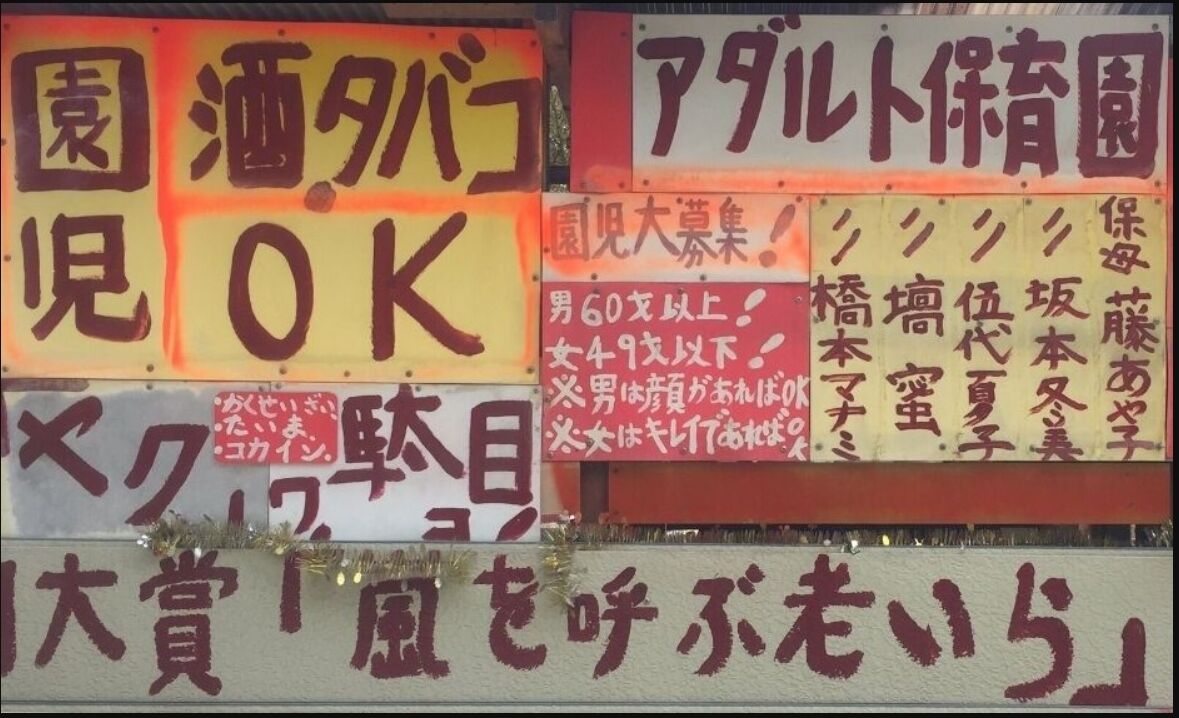 アダルト保育園
保母 藤あや子
〃 坂本冬美
〃 伍代夏子
〃 壇蜜
〃 橋本マナミ
園児大募集!
男60才以上!
女49才以下!
※男は顔があればOK
※女はキレイであればOK
園児
酒タバコ
OK
ヤク
・かくせいざい
・たいま、
・コカイン.
駄目ヨ
大賞「風を呼ぶ老いら」